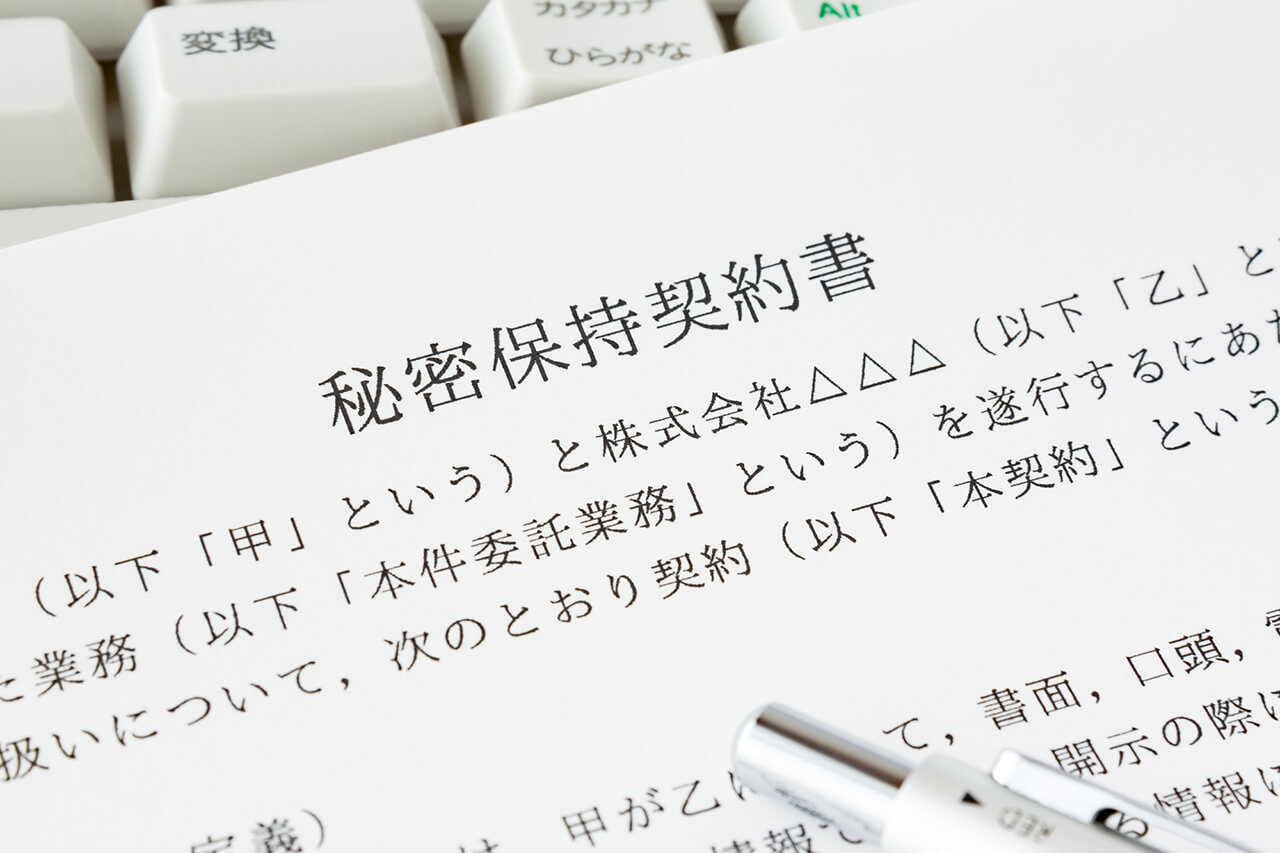 変換
カタカナ
ひらがな
Alt
秘密保持契約書
(以下「甲」という)と株式会社△△△(以下「乙」と
た業務(以下「本件委託業務」という)を遂行するにあた
扱いについて,次のとおり契約(以下「本契約」という
定義)
は 甲が乙に て,書面,口頭,
情報で 開示の際に
る情報に
RED